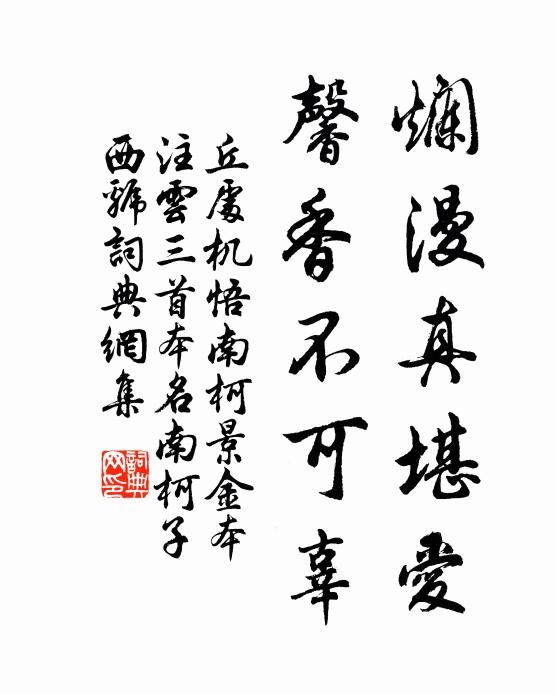 爛漫真堪愛
馨香不可辜
丘處机悟南柯景金本
注雲三首本名南柯子
西虢詞典網集
詞典网印